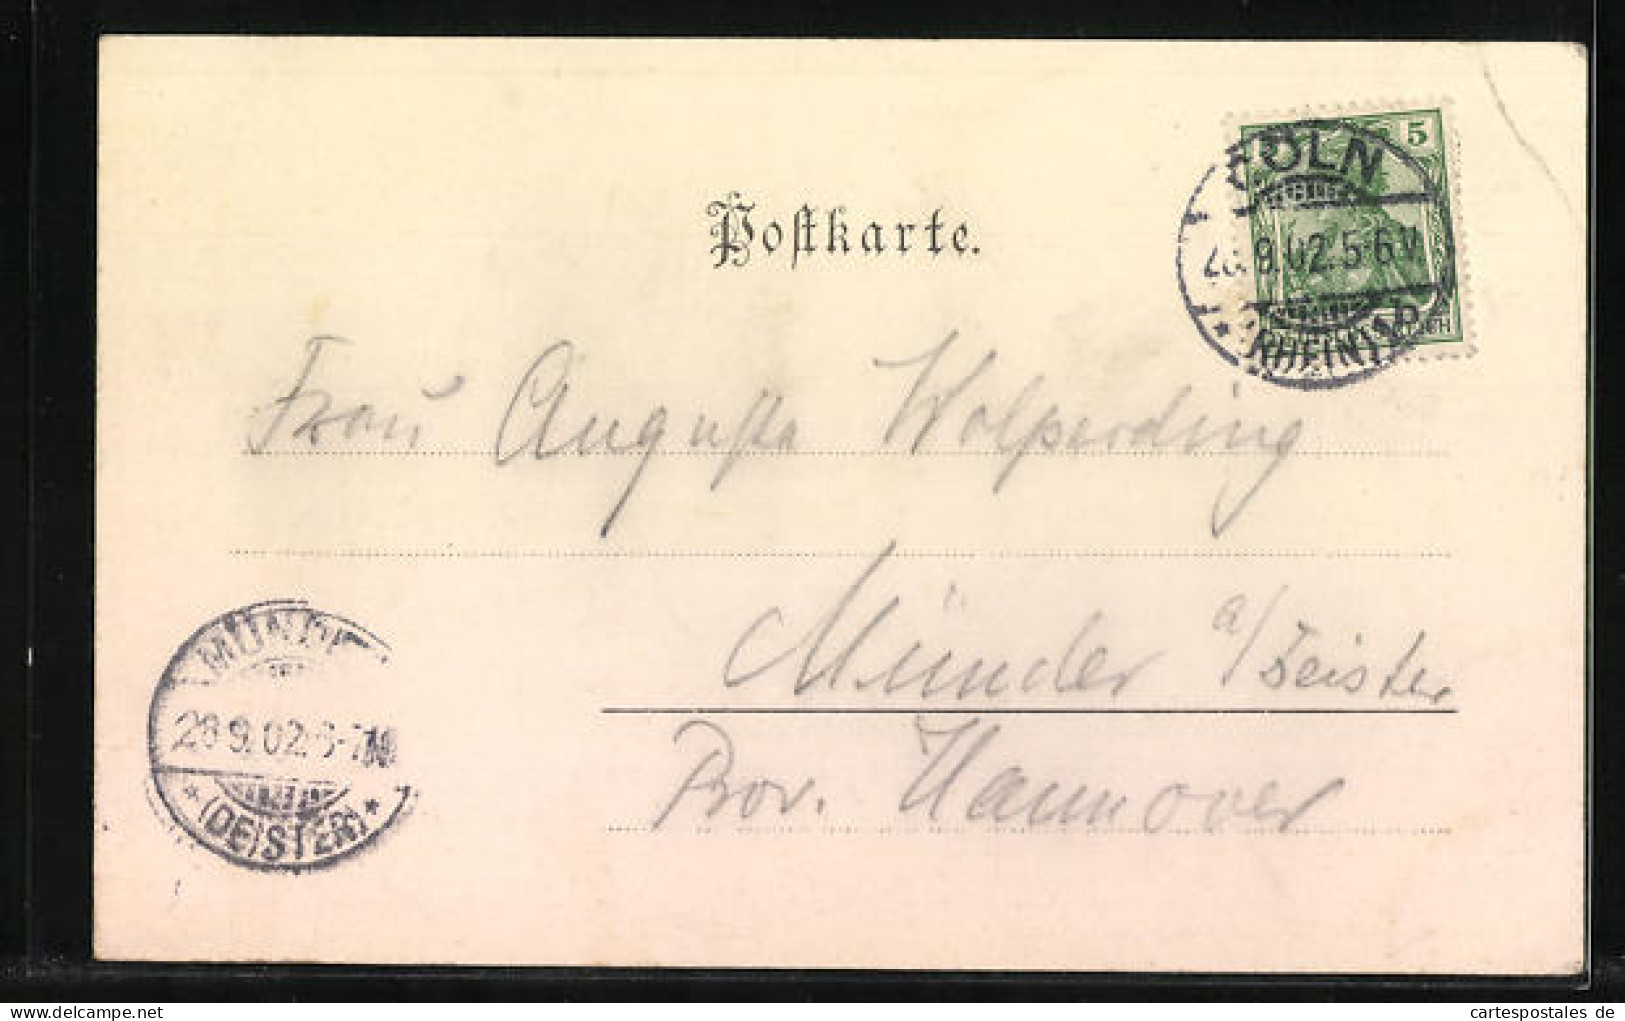 Postkarte.
5
CÖLN
9.02. 5-6 V.
* (RHEIN) 1
Frau Augusta Wolperding
Münder a/Deister
Prov. Hannover
MÜNDE
28.9.02. 6-7
* (DEISTER) *
cartespostales de